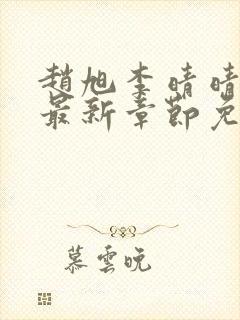 趙旭李晴晴
最新章節免
慕雲晚